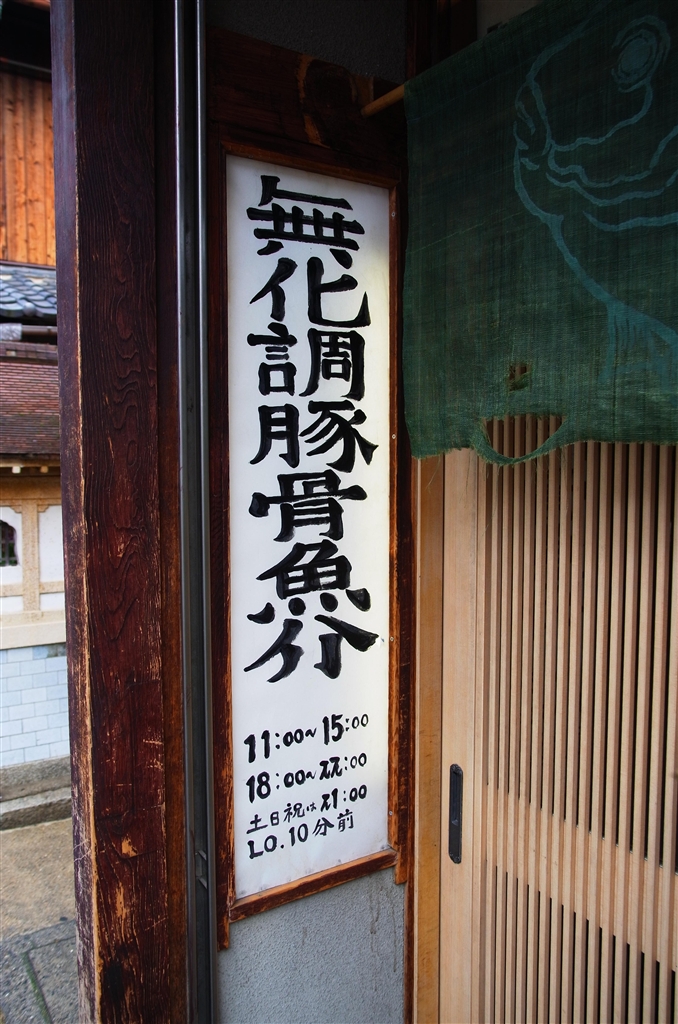 無化調豚骨魚介
11:00〜15:00
18:00〜22:00
土日祝は21:00
LO.10分前